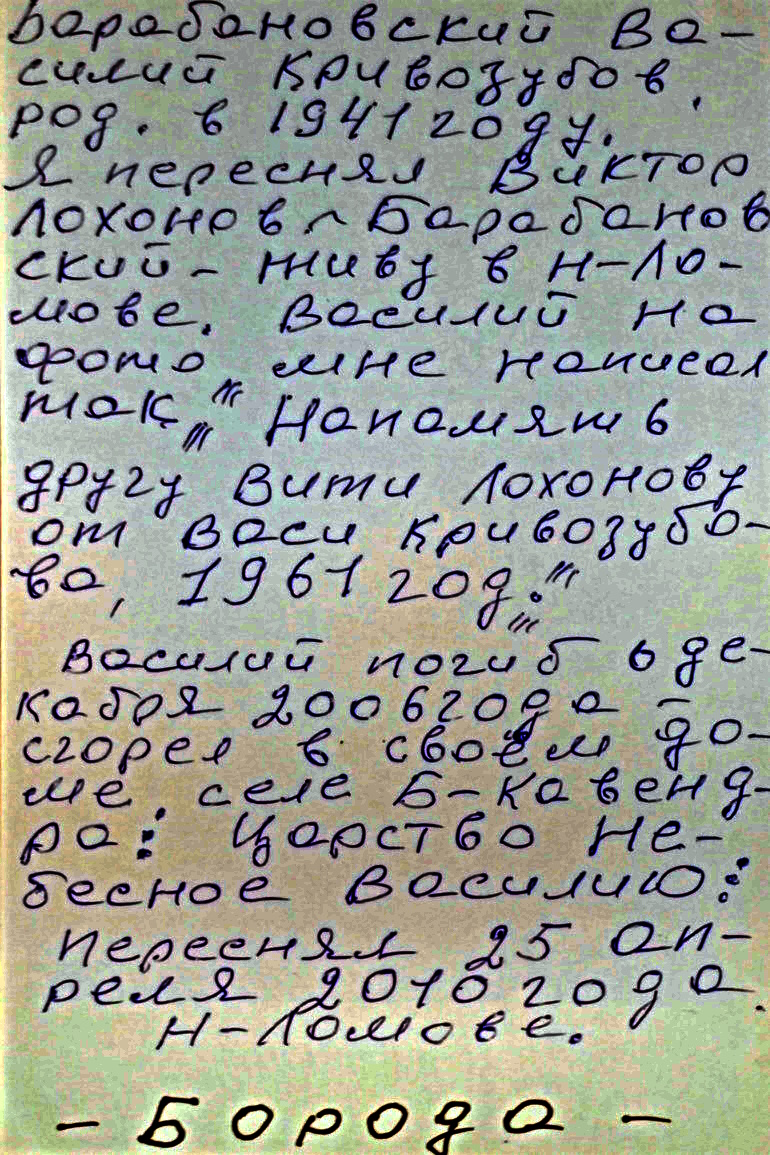 Барабановский Ва-
силий Кривозубов,
род. в 1941 году.
Я переснял Виктор
Лохонов ~ Барабанов
ский - живу в Н-Ло-
мове. Василий на
фото мне написал
так „" Напамять
другу Вити Лохонову
от Васи Кривозубо-
ва, 1961 год."„
Василий погиб 6 де-
кабря 2006 года -
сгорел в своём до-
ме, селе Б-Кавенд-
ра: Царство Не-
бесное Василию:
Переснял 25 ап-
реля 2010 года.
Н-Ломове.
- Борода -